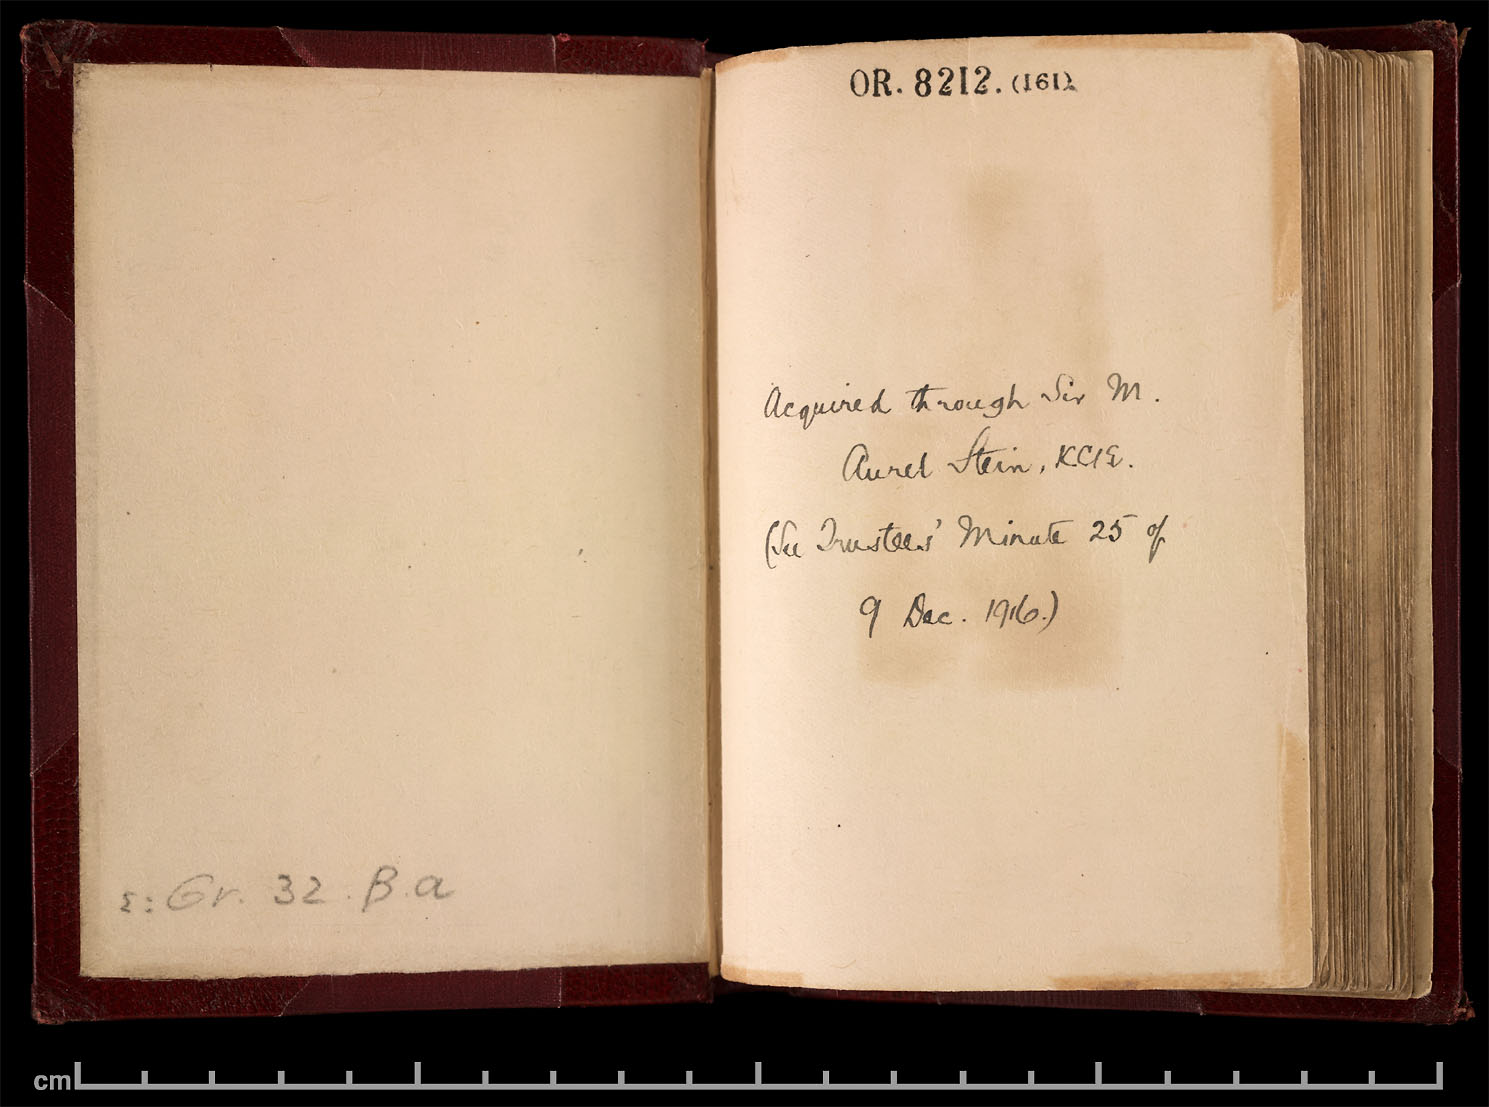 Σ: Gr. 32. B. a
OR. 8212. (161).
Acquired through Sir M.
Aurel Stein, KCIE.
(See Trustees' Minute 25 of
9 Dec. 1916.)
cm